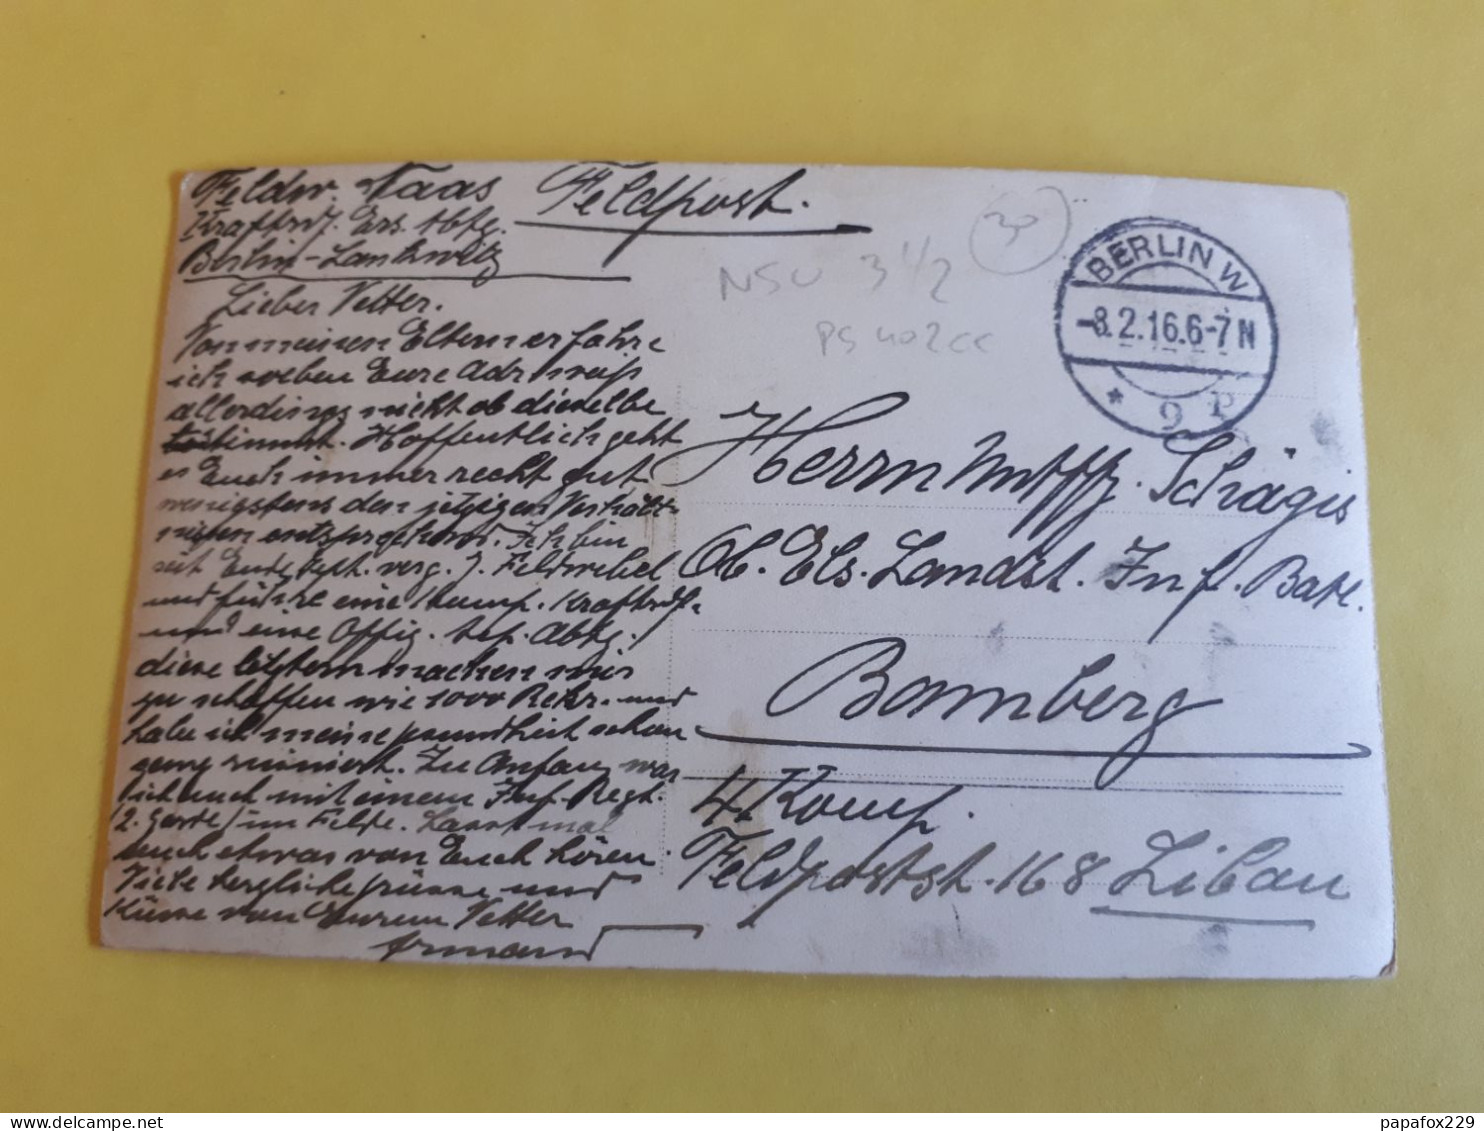 Feldw. Naas
Kraftrdf. Ers. Abtg.
Berlin-Lankwitz
Feldpost.
30
NSU 3 1/2
PS 402cc
BERLIN W
-8.2.16.6-7N
* 9 P
Lieber Vetter.
Von meinen Eltern erfahre
ich soeben Eure Adr. weiß
allerdings nicht ob dieselbe
stimmt. Hoffentlich geht
es Euch immer recht gut
wenigstens den jetzigen Verhält-
nissen entsprechend. Ich bin
seit Ende Sept. verg. J. Feldwebel
und führe eine Komp. Kraftrdf.
und eine Offiz. Abtg.
diese letztern machen mir
zu schaffen wie 1000 Rekr. und
habe ich meine Gesundheit schon
ganz ruiniert. Zu Anfang war
ich auch mit einem Inf. Regt.
(2. Garde) im Felde. Lasst mal
auch etwas von Euch hören.
Viele herzliche Grüsse und
Küsse von Eurem Vetter
Armand
Herrn Schägis
Ob. Els. Landst. Inf. Batl.
Bamberg
4 Komp.
Feldpostst. 168 Libau
papafox229